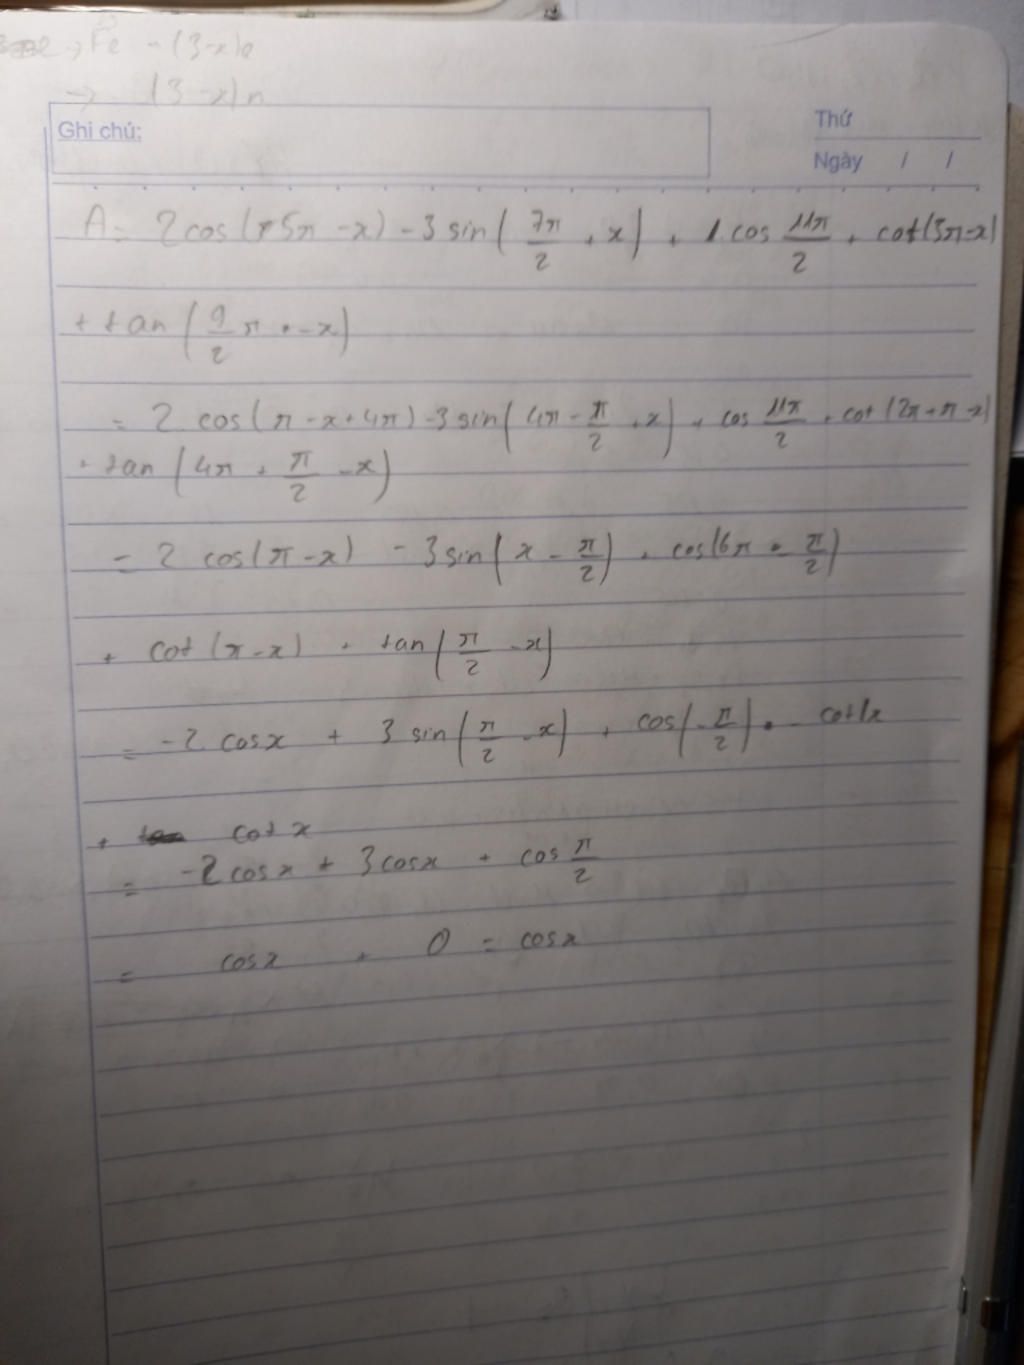 Fe - (3-x)e
→ (3-x)n
Ghi chú:
Thứ
Ngày / /
A = 2cos(5π - x) - 3 sin(7π/2 + x) + 1.cos 11π/2 + cot(3π-x)
+ tan(9/2 π - x)
= 2 cos(π - x + 4π) - 3 sin(4π - π/2 + x) + cos 11π/2 + cot(2π + π - x)
+ tan(4π + π/2 - x)
= 2 cos(π - x) - 3 sin(x - π/2) + cos(6π - π/2)
+ cot(π - x) + tan(π/2 - x)
= -2 cosx + 3 sin(π/2 - x) + cos(-π/2) - cot x
+ cot x
= -2 cosx + 3 cosx + cos π/2
= cosx + 0 = cosx